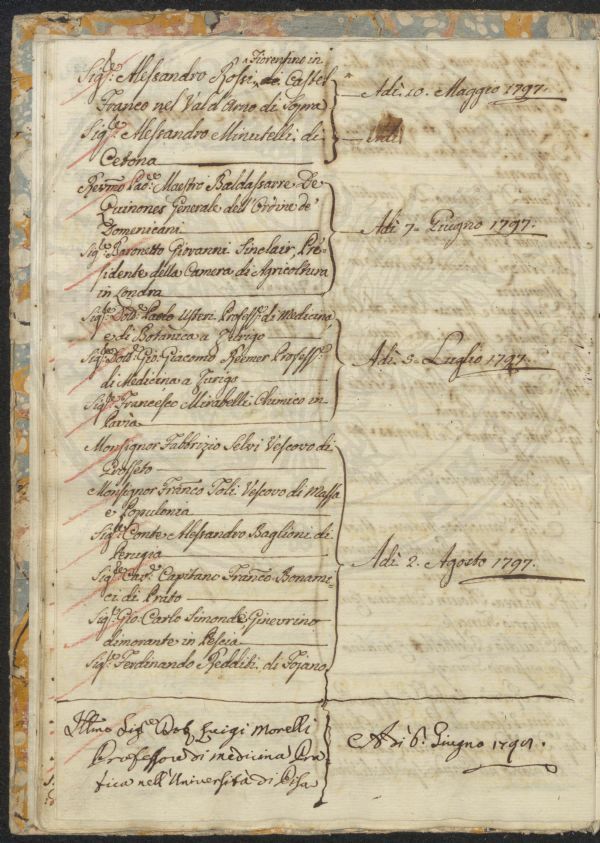 Fiorentino in
Sig.re Alessandro Rossi, Castel
Franco nel Vald'Arno di Sopra
Adì 10. Maggio 1797.
Sig.re Alessandro Minutelli di
Cetona
Revmo Pad.e Maestro Baldassarre De
Quinones Generale dell'Ordine de'
Domenicani
Adì 7. Giugno 1797.
Sig.re Baronetto Giovanni Sinclair, Pre-
sidente della Camera di Agricoltura
in Londra
Sig.re Dott.e Paolo Usteri Profess.e di Medicina,
e di Botanica a Zurigo
Sig.re Dott.e Gio: Giacomo Roemer Profess.e
di Medicina a Zurigo
Adì 5. Luglio 1797.
Sig.re Francesco Mirabelli Chimico in
Pavia
Monsignor Fabbrizio Selvi Vescovo di
Grosseto
Monsignor Franco Toli Vescovo di Massa
e Populonia
Sig.re Conte Alessandro Baglioni di
Perugia
Adì 2. Agosto 1797.
Sig.re Cav.e Capitano Franco Bonami-
ci di Prato
Sig.re Gio: Carlo Simonde Ginevrino
dimorante in Pescia
Sig.re Ferdinando Redditi di Fojano
Illmo Sig.e Dot. Luigi Morelli
Professore di medicina Pra
tica nell'Università di Pisa
Adì 6. Giugno